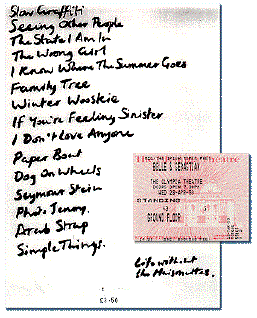 Slow Graffiti
Seeing Other People
The State I Am In
The Wrong Girl
I Know Where The Summer Goes
Family Tree
Winter Wooskie
If You're Feeling Sinister
I Don't Love Anyone
Paper Boat
Dog On Wheels
Seymour Stein
Photo Jenny.
Arab Strap
Simple Things.
BELLE & SEBASTIAN
THE OLYMPIA THEATRE
DOORS OPEN
WED
STANDING
GROUND FLOOR
Life without
the